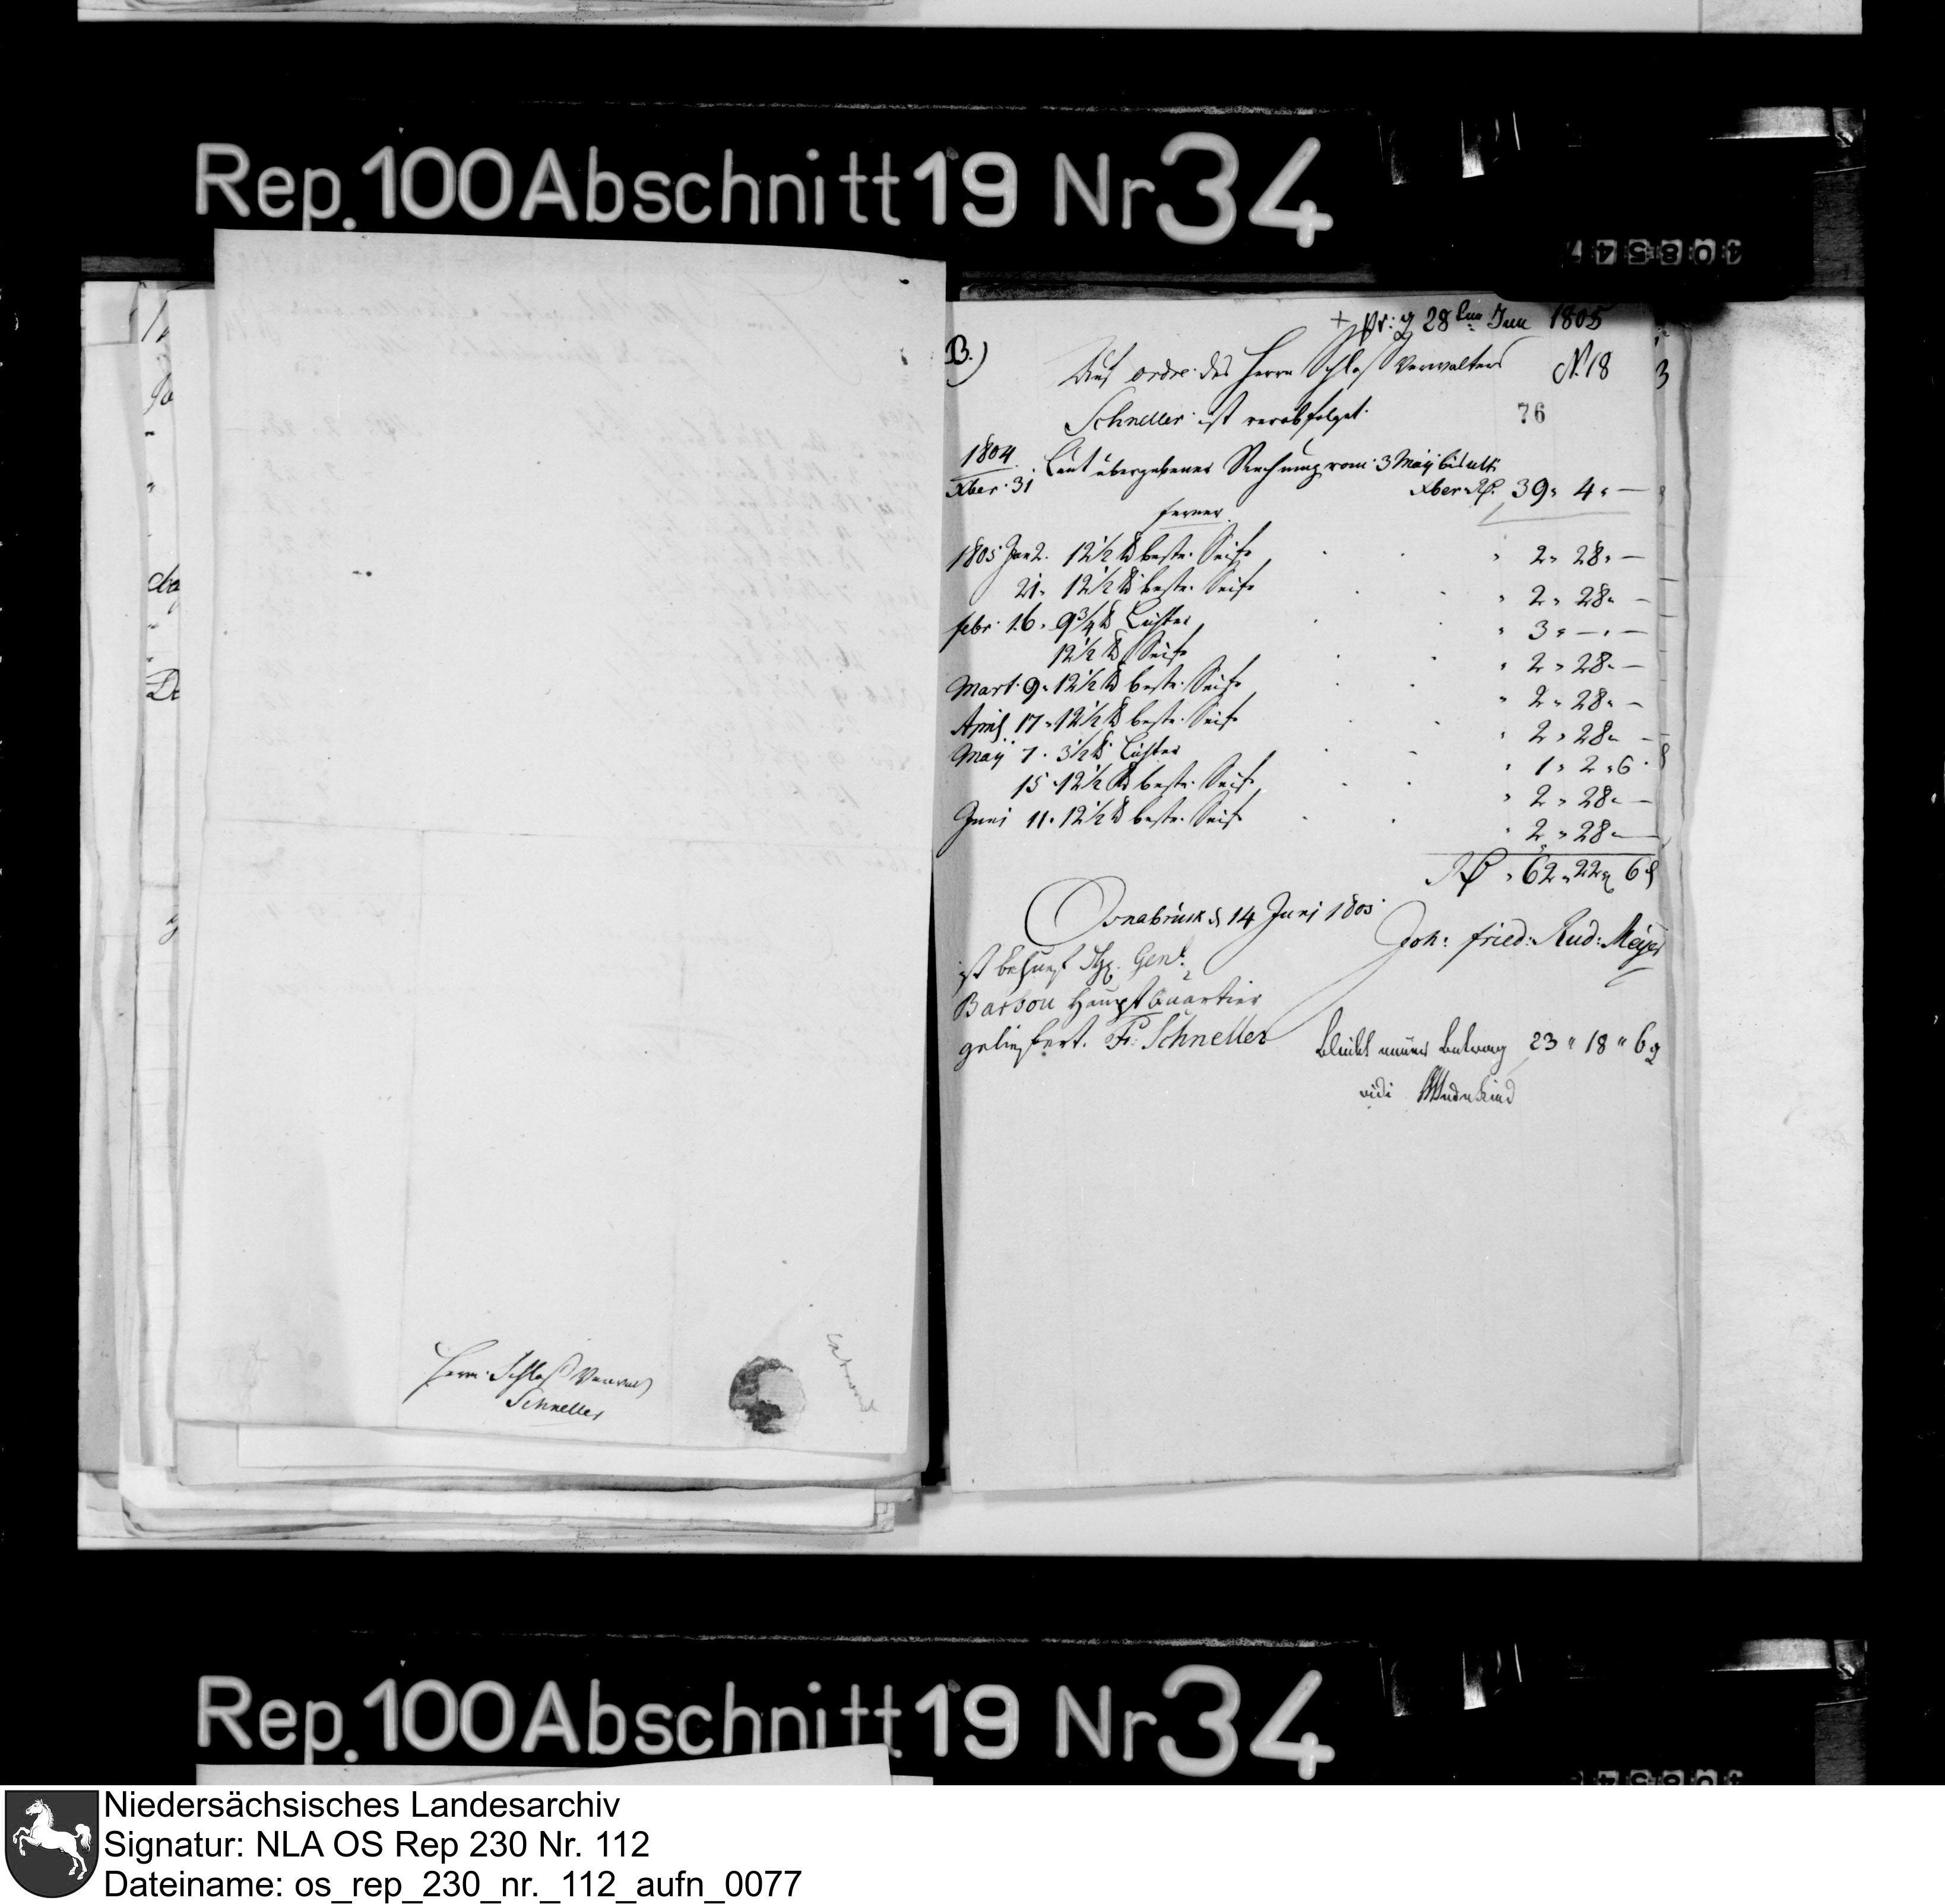 Rep. 100 Abschnitt 19 Nr 34
408547
Herrn Schloß Verwalt
Schneller
pr: 28 Jun 1805
B.)
Auf ordre des Herrn Schloß Verwalters
N. 18
3
Schneller ist verabfolget.
76
1804
Xber 31
Laut übergebener Rechnung vom 3 Maÿ bis ult:
Xber Rth. 39 " 4 " —
ferner
1805 Jan 2. 12 1/2 ℔ beste Seife " 2 " 28 " —
21. 12 1/2 ℔ beste Seife " 2 " 28 " —
febr. 16. 9 3/4 ℔ Lichter " 3 " — " —
12 1/2 ℔ Seife " 2 " 28 " —
Mart. 9. 12 1/2 ℔ beste Seife " 2 " 28 " —
April 17. 12 1/2 ℔ beste Seife " 2 " 28 " —
Maÿ 7. 3 1/2 ℔ Lichter " 1 " 2 " 6
15. 12 1/2 ℔ beste Seife " 2 " 28 " —
Juni 11. 12 1/2 ℔ beste Seife " 2 " 28 " —
Rth " 62 " 22 " 6 ₰
Osnabrück d 14 Juni 1805
Joh: fried: Rud: Meÿer
ist behuef Genl:
Barbou Haupt Quartier
geliefert. Fr. Schneller
bleibt Betrag 23 " 18 " 6 ₰
vidi Wedekind
Rep. 100 Abschnitt 19 Nr 34
Niedersächsisches Landesarchiv
Signatur: NLA OS Rep 230 Nr. 112
Dateiname: os_rep_230_nr._112_aufn_0077